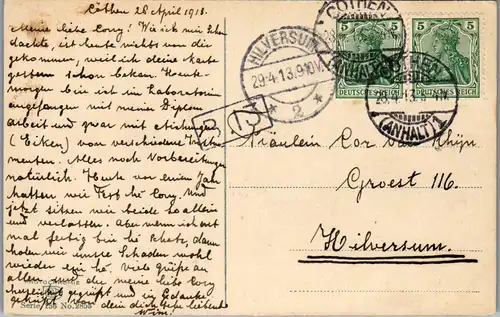 Cöthen 28 April 1913.
Meine liebe Cory! Wie ich mir schon
dachte, ist heute nichts von dir
gekommen, weil ich deine Karte
gestern schon bekam. Heute
morgen bin ich im Laboratorium
angefangen mit meiner Diplom
arbeit und zwar mit Aichungen
(Eiken) von verschiedene Instru-
menten. Alles noch Vorbereitungen
natürlich. Heute vor einem Jahr
hatten wir hè Cory, und
jetzt sitzen wir beide so allein
und verlassen. Aber wenn ich erst
mal fertig bin hè, dann
holen wir unsre Schaden wohl
wieder ein hè. Viele grüße an
allen und die meine liebe Cory
herzlichst gegrüßt und in Gedanken
geküßt von dein dich sehr liebende
Wim.
Serie 156 No. 2805
HILVERSUM
29.4.13.9-10V
* 2 *
CÖTHEN
(ANHALT)
CÖTHEN
28.4.13
(ANHALT) 1
5 5
DEUTSCHES REICH
5 5
DEUTSCHES REICH
Fräulein Cor van Rhijn
Groest 116.
Hilversum.